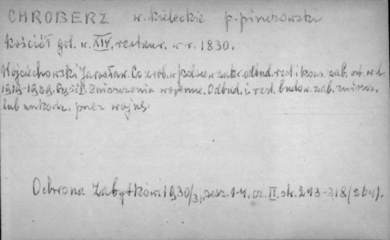 CHROBERZ w. kieleckie p. pińczowski
Kościół got. w. XIV, restaur. w r. 1830.
Wojciechowski Jarosław. Co zrob. w Polsce w zakr. odbud. rest. i kons. zab. od r.
1914-1929. Część I. Zniszczenia wojenne. Odbud. i rest. budow. zab. zniszcz.
lub uszkodz. przez wojnę.
Ochrona Zabytków 1930/31, zesz. 1-4, cz. II, str. 243-318 (264).